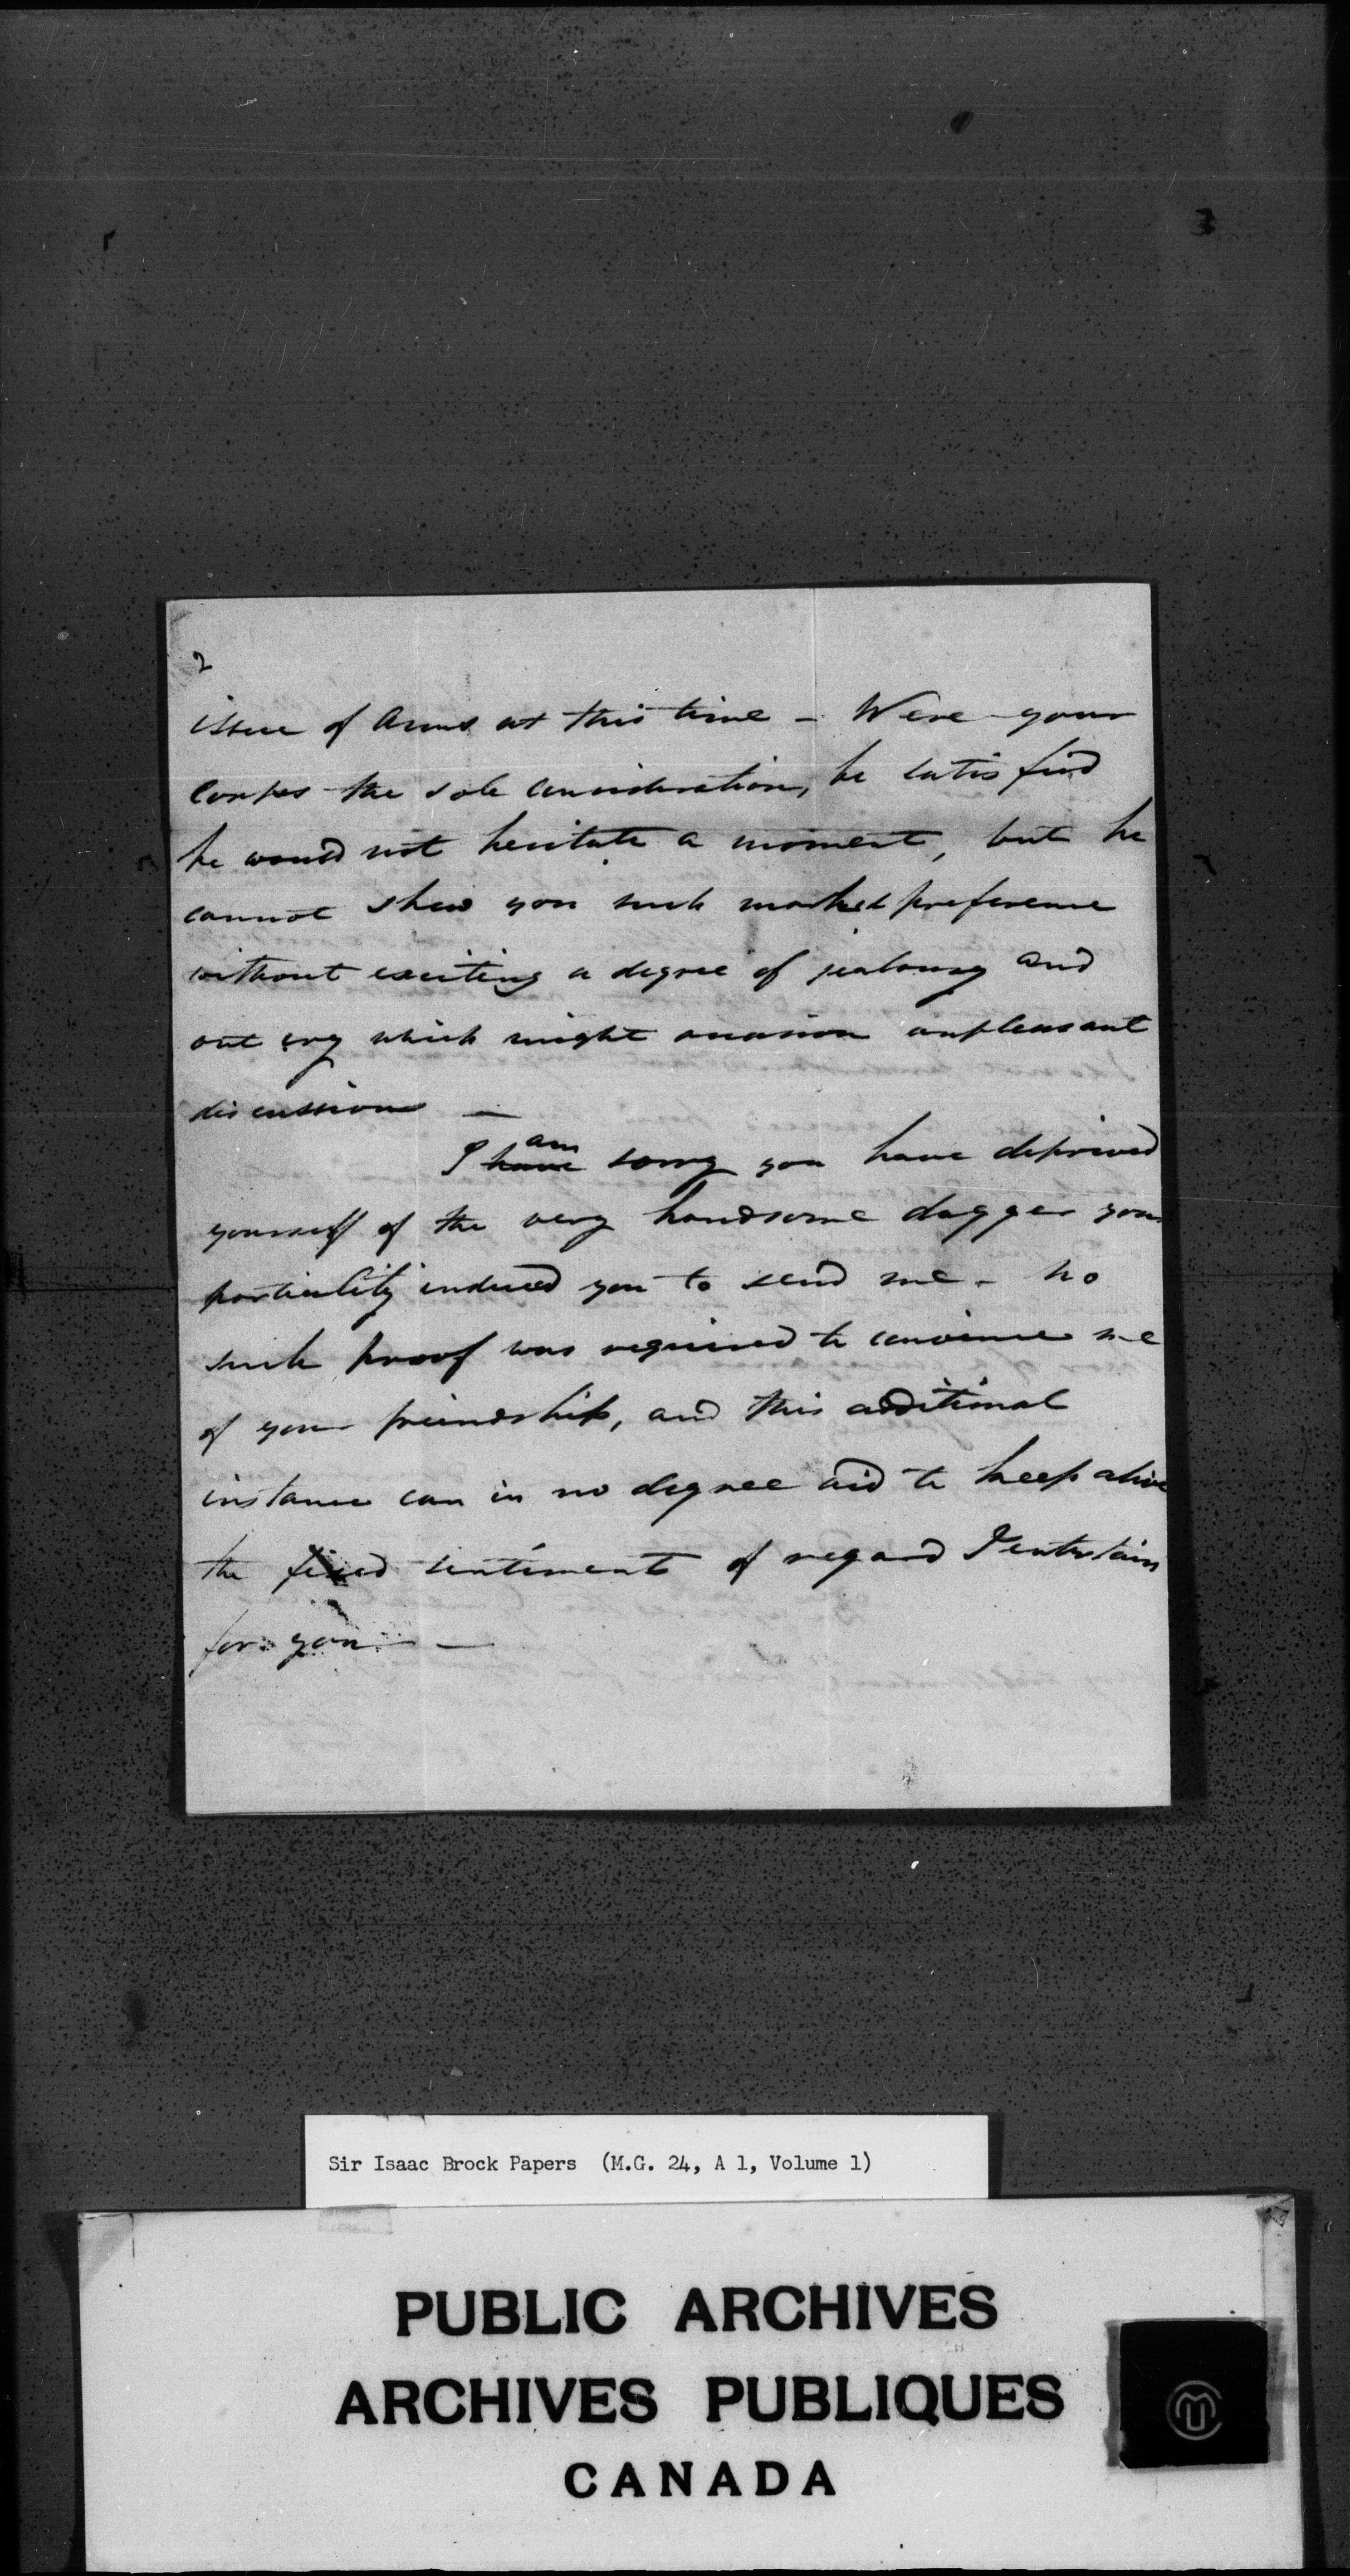 2
issue of Arms at this time - Were your
corps the sole consideration, be satisfied
he would not hesitate a moment, but he
cannot shew you such marked preference
without exciting a degree of jealousy and
out cry which might occasion unpleasant
discussions -
I have am sorry you have deprived
yourself of the very handsome dagger your
partiality induced you to send me - No
such proof was required to convince me
of your friendship, and this additional
instance can in no degree aid to keep alive
the fixed sentiments of regard I entertain
for you -
Sir Isaac Brock Papers (M.G. 24, A 1, Volume 1)
PUBLIC ARCHIVES
ARCHIVES PUBLIQUES
CANADA